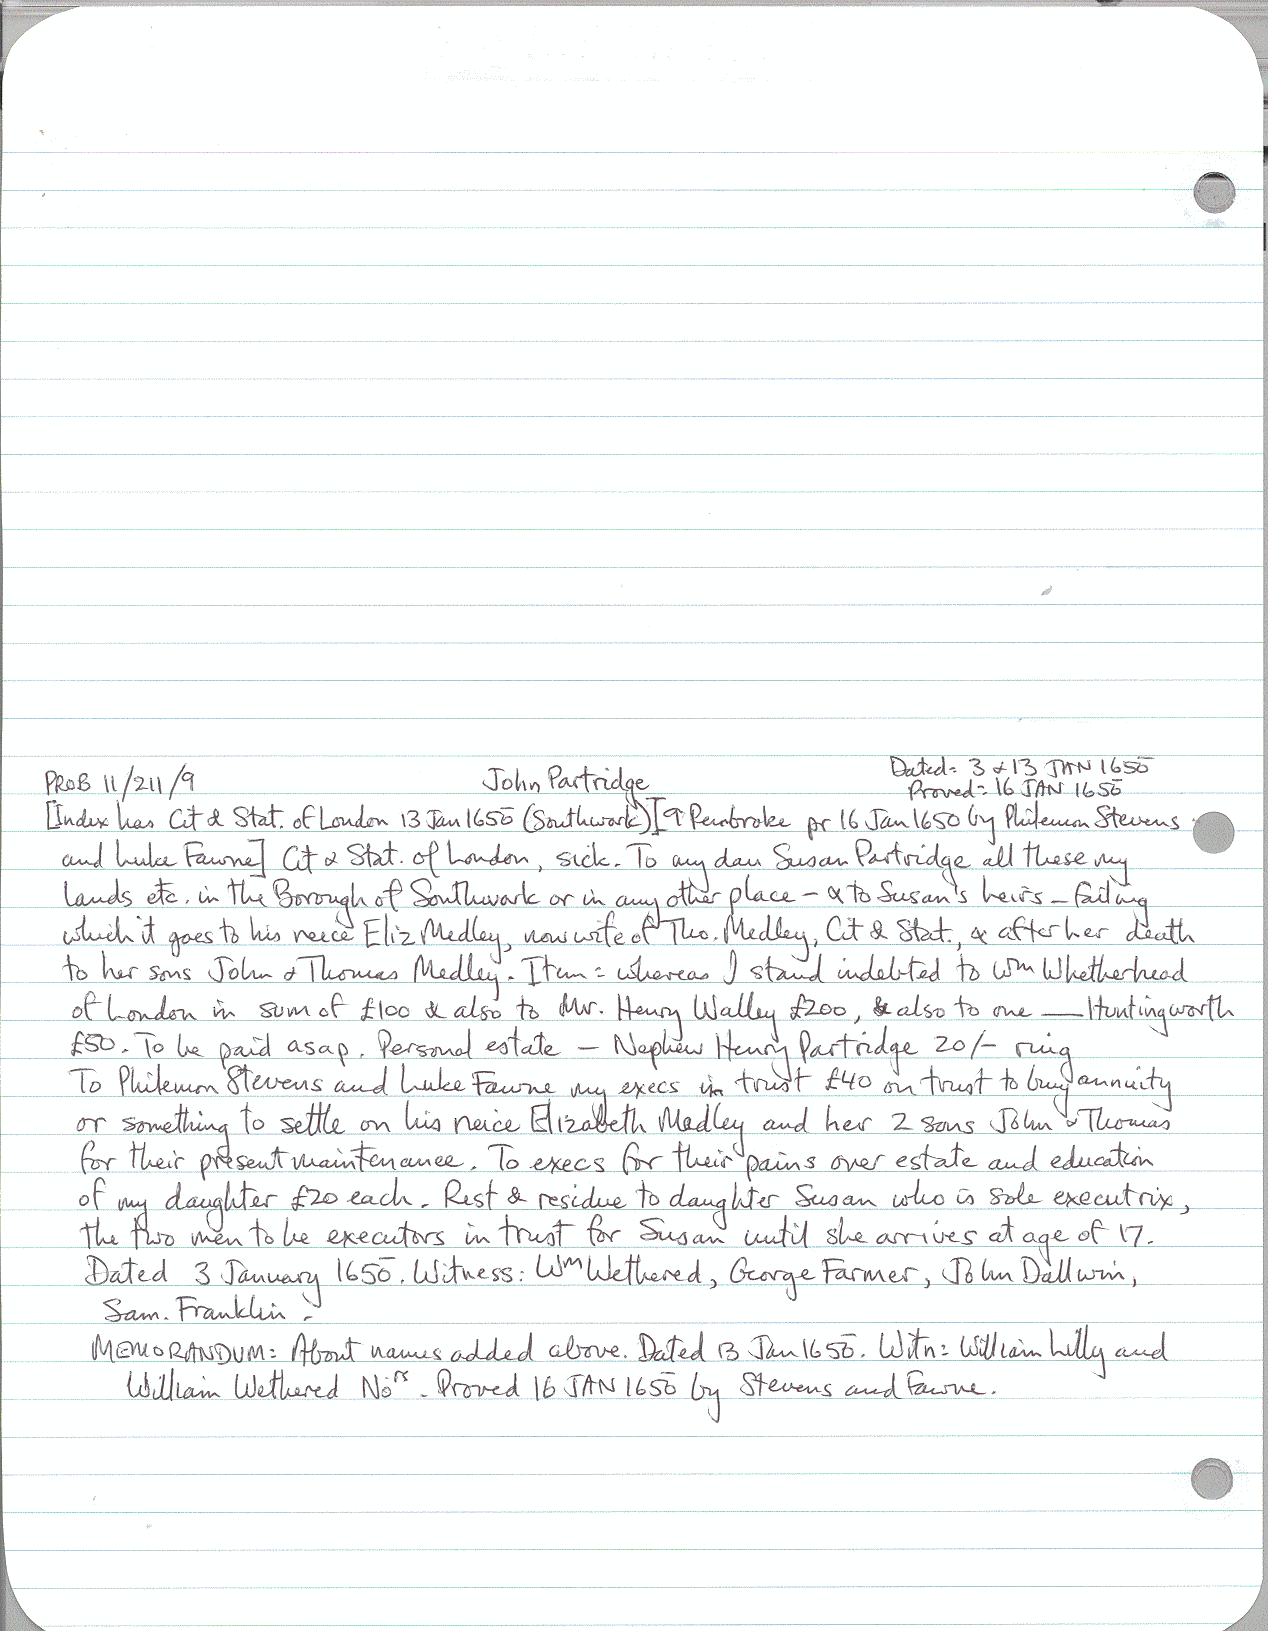 Dated: 3 & 13 JAN 1650
PROB 11/211/9 John Partridge Proved: 16 JAN 1650
[Index has Cit & Stat. of London 13 Jan 1650 (Southwark)] [ Pembroke pr 16 Jan 1650 by Philemon Stevens
and Luke Fawne] Cit & Stat. of London, sick. To my dau Susan Partridge all these my
lands etc. in the Borough of Southwark or in any other place – & to Susan's heirs – failing
which it goes to his neece Eliz Medley, now wife of Tho. Medley, Cit & Stat., & after her death
to her sons John & Thomas Medley. Item: whereas I stand indebted to Wm Whetherhead
of London in sum of £100 & also to Mr. Henry Walley £200, & also to one — Huntingworth
£50. To be paid asap. Personal estate – Nephew Henry Partridge 20/- ring
To Philemon Stevens and Luke Fawne my execs in trust £40 on trust to buy annuity
or something to settle on his neice Elizabeth Medley and her 2 sons John & Thomas
for their present maintenance. To execs for their pains over estate and education
of my daughter £20 each. Rest & residue to daughter Susan who is sole executrix,
the two men to be executors in trust for Susan until she arrives at age of 17.
Dated 3 January 1650. Witness: Wm Wethered, George Farmer, John Dallwin,
Sam. Franklin.
MEMORANDUM: About names added above. Dated 13 Jan 1650. Witn: William Lilly and
William Wethered Nors. Proved 16 JAN 1650 by Stevens and Fawne.